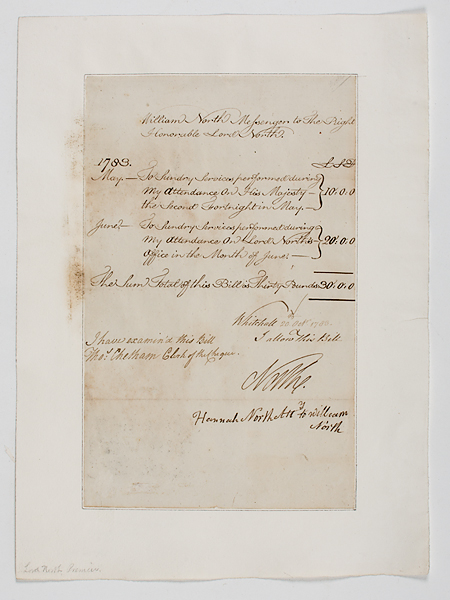 William North Messenger to The Right
Honorable Lord North.
1783. £ S D
May.— To Sundry Services performed during
My Attendance On His Majesty—
the Second Fortnight in May.— 10.0.0
June.— To Sundry Services performed during
My Attendance On Lord North's
Office in the Month of June.— 20.0.0
The Sum Total of this Bill is Thirty Pounds 30.0.0
Whitehall Octr. 1783.
I have examin'd this Bill I allow This Bill.
Thos. Chetham Clerk of the Cheque.
North.
Hannah North Atty. to William
North
Lord North